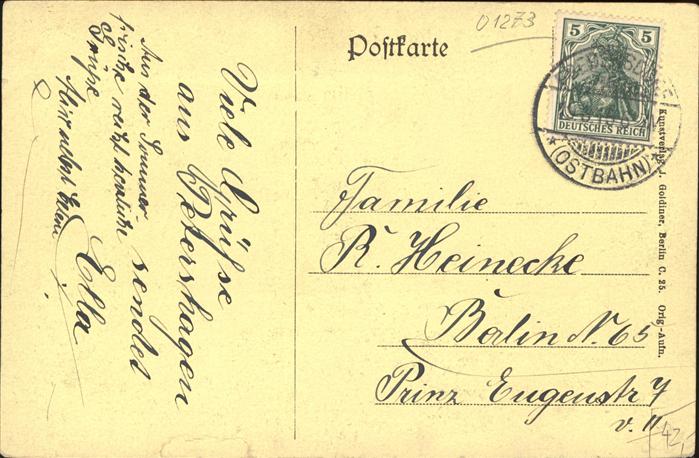 01273
Postkarte
5 5
DEUTSCHES REICH
(OSTBAHN)
Viele Grüße
aus Petershagen
sendet
Ella
Aus der Sommer
frische recht herzliche
Grüße
Familie
R. Heinecke
Berlin N. 65
Prinz Eugenstr 7
v. II
42,
Kunstverlag J. Goldiner, Berlin C. 25. Orig.-Aufn.